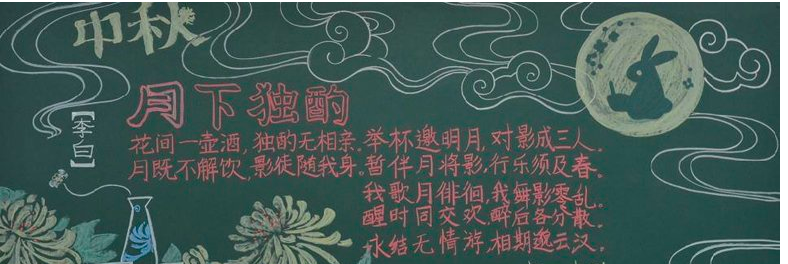 中秋
月下独酌
【李白】
花间一壶酒,独酌无相亲。举杯邀明月,对影成三人。
月既不解饮,影徒随我身。暂伴月将影,行乐须及春。
我歌月徘徊,我舞影零乱。
醒时同交欢,醉后各分散。
永结无情游,相期邈云汉。